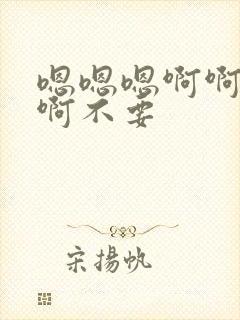 嗯嗯嗯啊啊
啊不要
宋揚帆